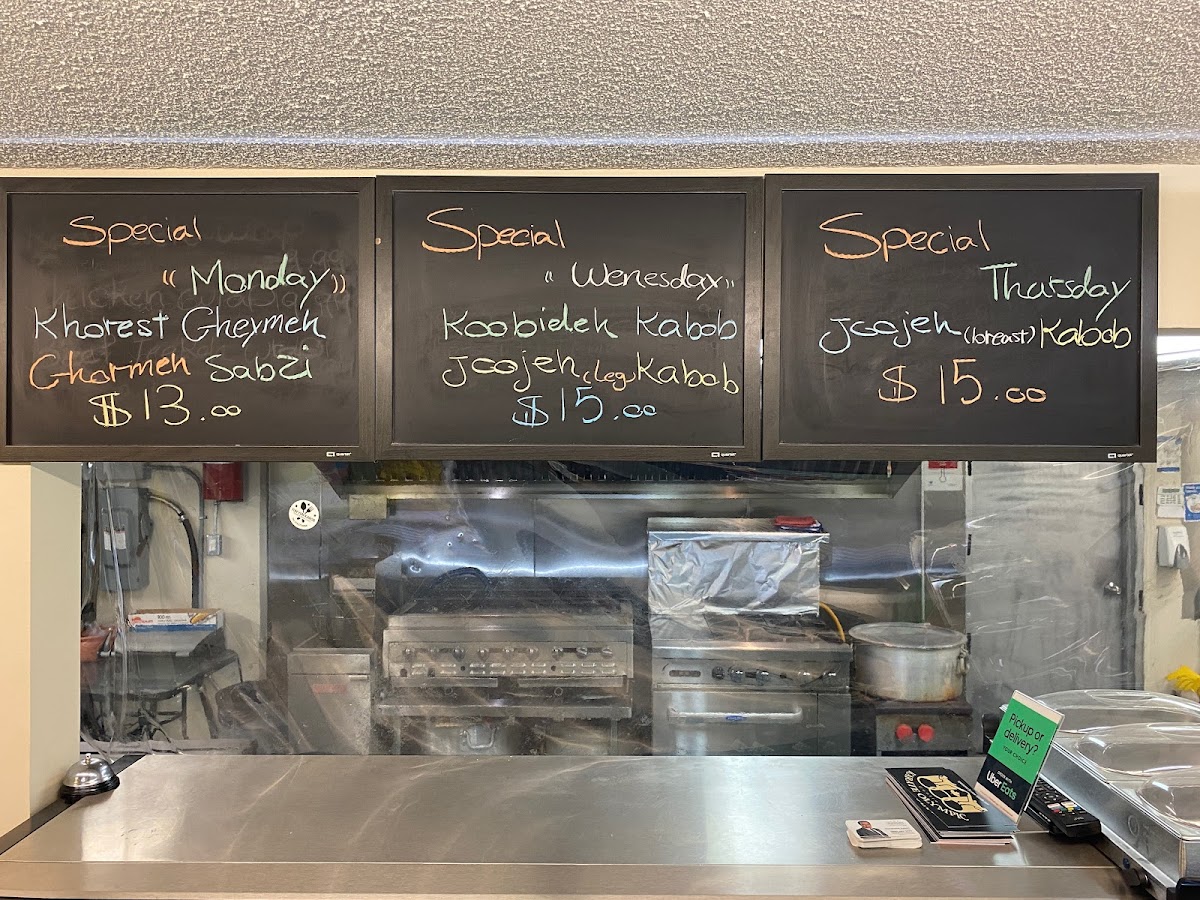 Special
"Monday"
Khorest Gheymeh
Ghormeh Sabzi
$13.00
Special
"Wenesday"
Koobideh Kabob
Joojeh (leg) Kabob
$15.00
Special
Thursday
Joojeh (breast) Kabob
$15.00
Pickup or
delivery?
YOUR CHOICE
Uber Eats
OLYMPIC